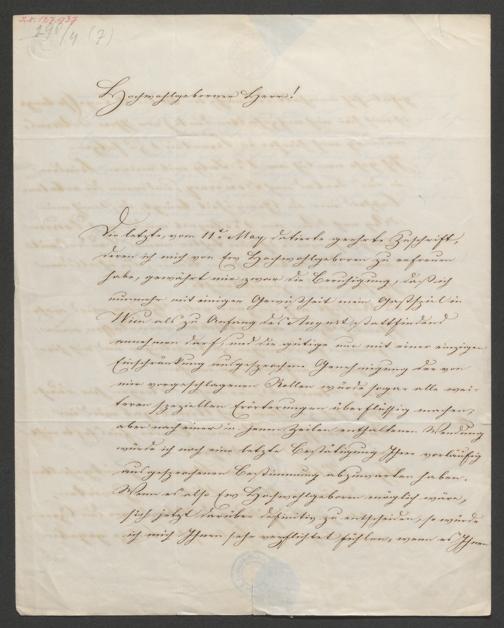 I.N. 127.937
290/4 (7)
Hochwohlgeborner Herr!
Die letzte, vom 11t. May datierte geehrte Zuschrift,
deren ich mich von Ew Hochwohlgeboren zu erfreuen
habe, gewährt mir zwar die Beruhigung, daß ich
nunmehr mit einigen Gewißheit mein Gastspiel in
Wien als zu Anfang des August stattfindend
annehmen darf, und die gütige nur mit einer einzigen
Einschränkung ausgesprochene Genehmigung der von
mir vorgeschlagenen Rollen würde sogar alle wei-
teren speziellen Erörterungen überflüssig machen,
aber nach einer in jenen Zeilen enthaltenen Wendung
würde ich noch eine letzte Bestätigung Ihrer vorläufig
ausgesprochenen Bestimmung abzuwarten haben.
Wenn es also Ew Hochwohlgeboren möglich wäre,
sich jetzt darüber definitiv zu entscheiden, so würde
ich mich Ihnen sehr verpflichtet fühlen, wenn es Ihnen